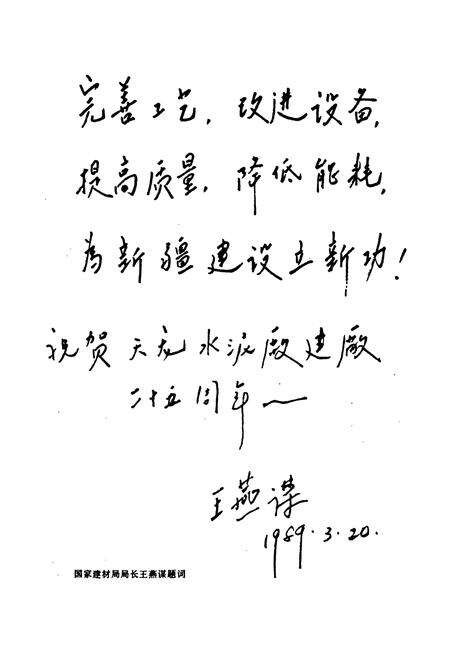 完善工艺，改进设备，
提高质量，降低能耗，
为新疆建设立新功！
祝贺天龙水泥厰建厰
二十五周年——
王燕谋
1989.3.20.
国家建材局局长王燕谋题词